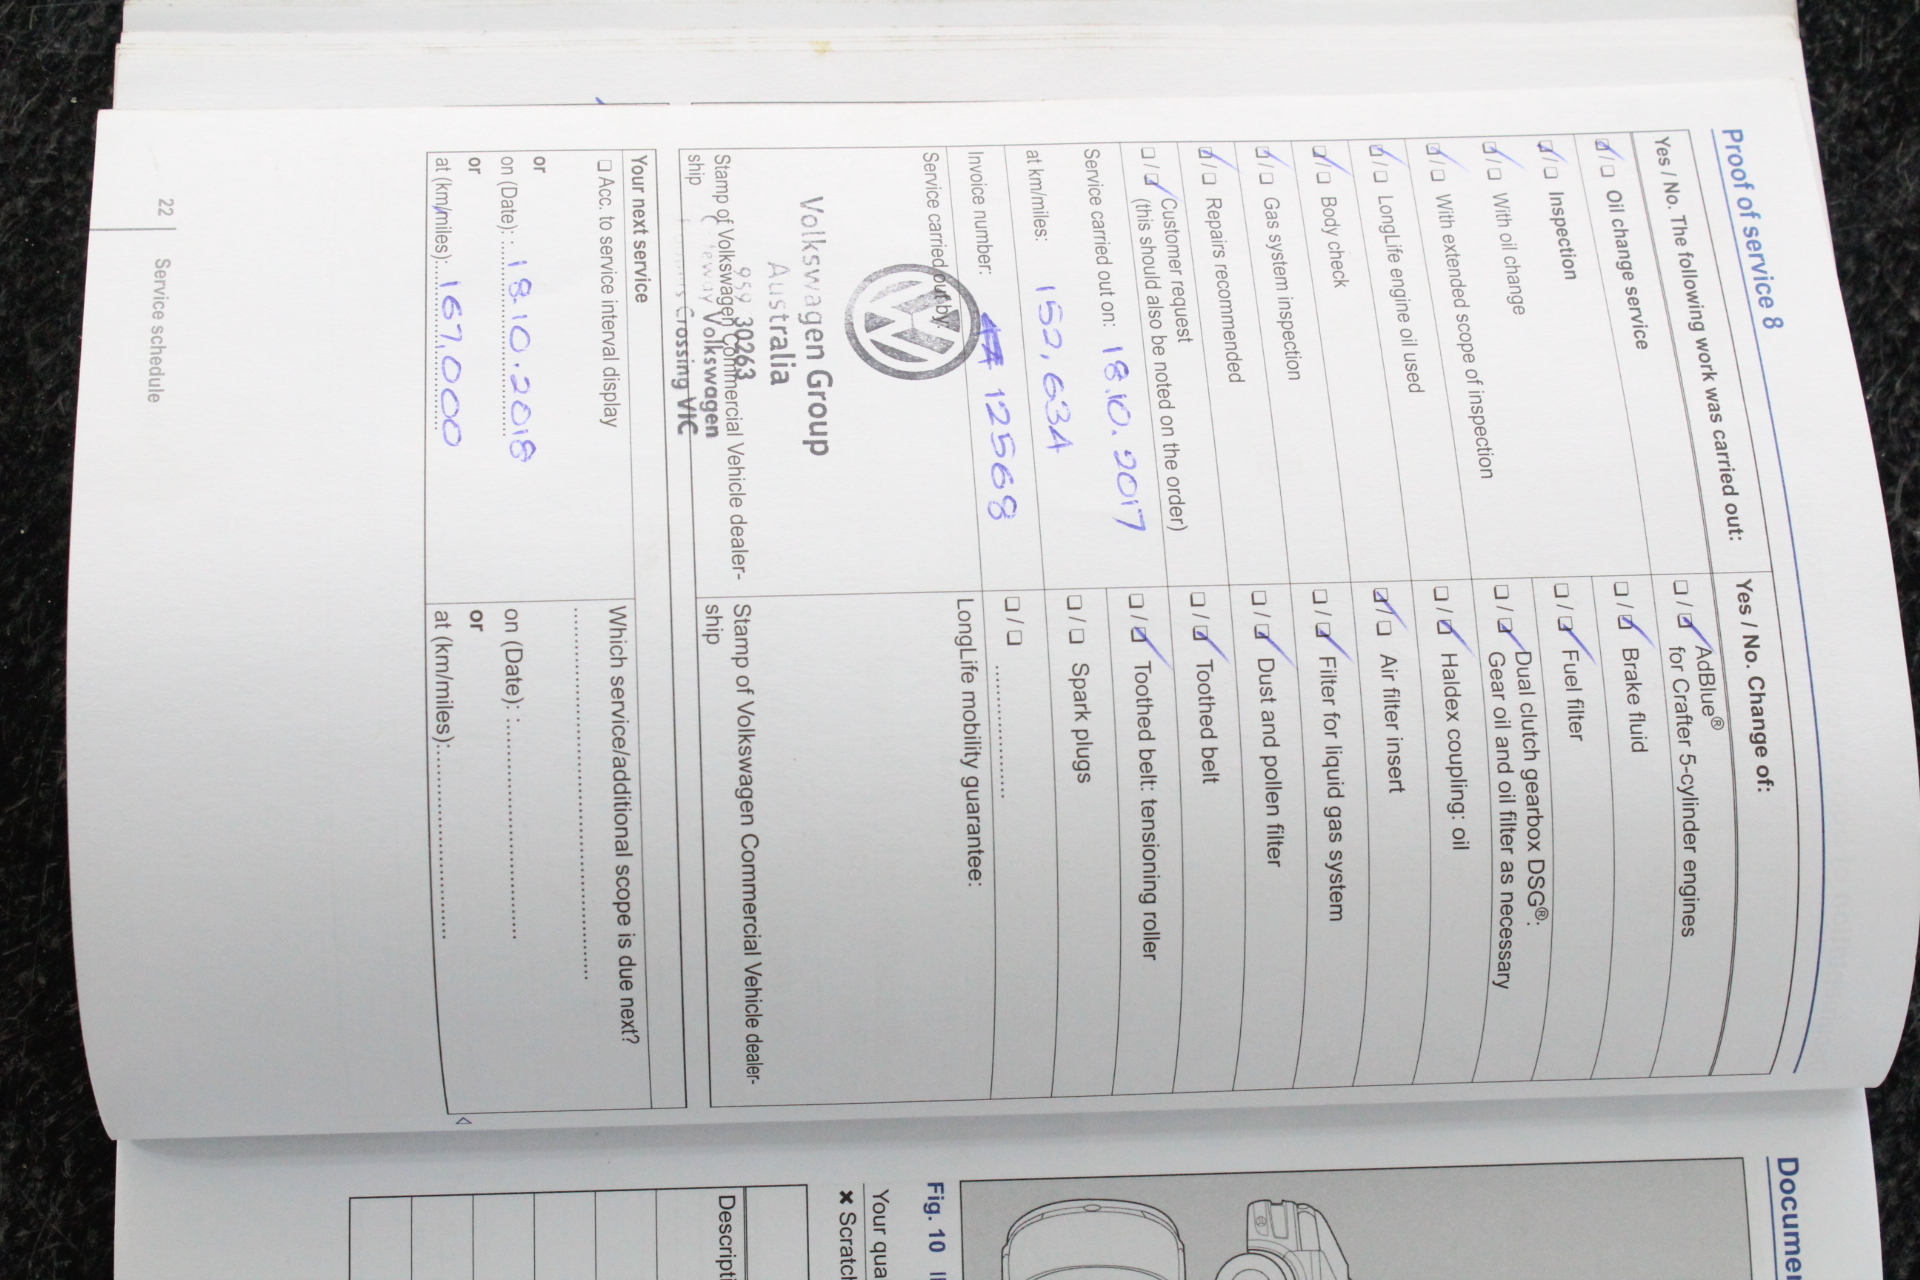 Proof of service 8
Yes / No. The following work was carried out:
☑/☐ Oil change service
☑/☐ Inspection
☑/☐ With oil change
☑/☐ With extended scope of inspection
☑/☐ LongLife engine oil used
☑/☐ Body check
☑/☐ Gas system inspection
☑/☐ Repairs recommended
☐/☑ Customer request
(this should also be noted on the order)
Service carried out on: 18.10.2017
at km/miles: 152,634
Invoice number: 12568
Service carried out by:
Volkswagen Group
Australia
959 30263
Volkswagen
Crossing VIC
Stamp of Volkswagen Commercial Vehicle dealer-
ship
Yes / No. Change of:
☐/☑ AdBlue®
for Crafter 5-cylinder engines
☐/☑ Brake fluid
☐/☑ Fuel filter
☐/☑ Dual clutch gearbox DSG®:
Gear oil and oil filter as necessary
☐/☑ Haldex coupling: oil
☑/☐ Air filter insert
☐/☑ Filter for liquid gas system
☐/☑ Dust and pollen filter
☐/☑ Toothed belt
☐/☑ Toothed belt: tensioning roller
☐/☐ Spark plugs
☐/☐ ....................
LongLife mobility guarantee:
Stamp of Volkswagen Commercial Vehicle dealer-
ship
Your next service
☐ Acc. to service interval display
or
on (Date): 18.10.2018
or
at (km/miles): 167,000
Which service/additional scope is due next?
on (Date):
or
at (km/miles):
22 Service schedule
Docume
Fig. 10
Your qua
✖ Scratch
Descripti